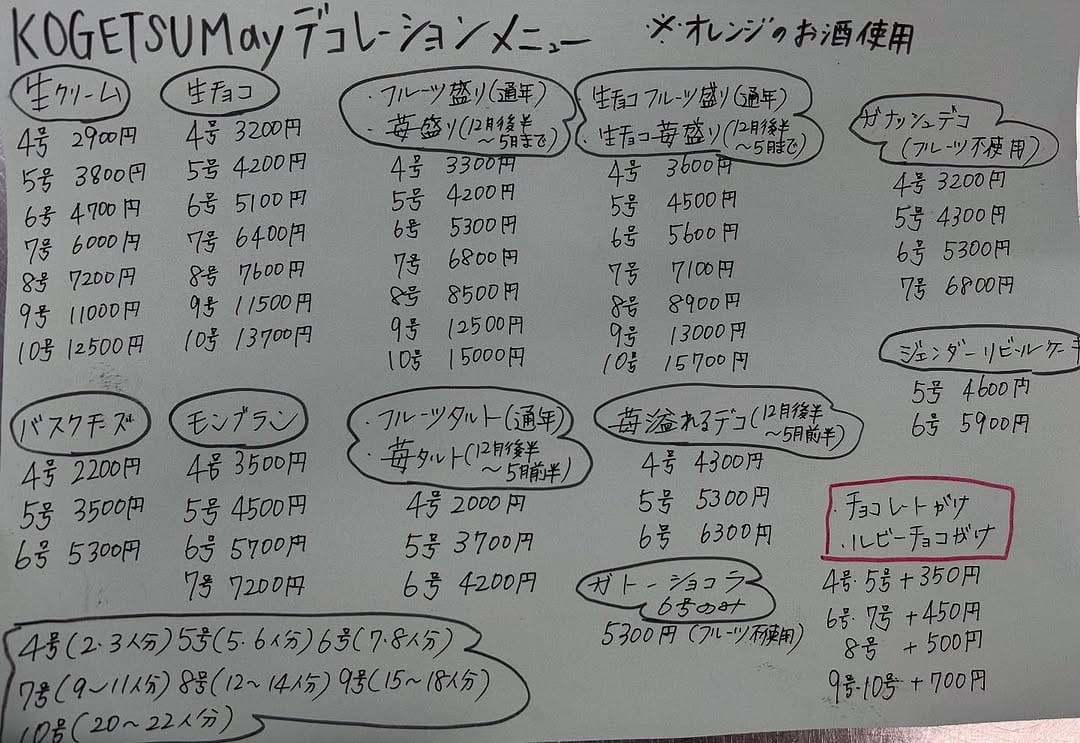 KOGETSUMayデコレーションメニュー ※オレンジのお酒使用
生クリーム
4号 2900円
5号 3800円
6号 4700円
7号 6000円
8号 7200円
9号 11000円
10号 12500円
生チョコ
4号 3200円
5号 4200円
6号 5100円
7号 6400円
8号 7600円
9号 11500円
10号 13700円
・フルーツ盛り(通年)
・苺盛り(12月後半
〜5月まで)
4号 3300円
5号 4200円
6号 5300円
7号 6800円
8号 8500円
9号 12500円
10号 15000円
生チョコフルーツ盛り(通年)
・生チョコ苺盛り(12月後半
〜5月まで)
4号 3600円
5号 4500円
6号 5600円
7号 7100円
8号 8900円
9号 13000円
10号 15700円
ガナッシュデコ
(フルーツ不使用)
4号 3200円
5号 4300円
6号 5300円
7号 6800円
ジェンダーリビールケーキ
5号 4600円
6号 5900円
バスクチーズ
4号 2200円
5号 3500円
6号 5300円
モンブラン
4号 3500円
5号 4500円
6号 5700円
7号 7200円
・フルーツタルト(通年)
・苺タルト(12月後半
〜5月前半)
4号 2000円
5号 3700円
6号 4200円
苺溢れるデコ(12月後半
〜5月前半)
4号 4300円
5号 5300円
6号 6300円
ガトーショコラ
6号のみ
5300円(フルーツ不使用)
・チョコレートがけ
・ルビーチョコがけ
4号・5号+350円
6号・7号+450円
8号 +500円
9号・10号+700円
4号(2・3人分)5号(5・6人分)6号(7・8人分)
7号(9〜11人分)8号(12〜14人分)9号(15〜18人分)
10号(20〜22人分)